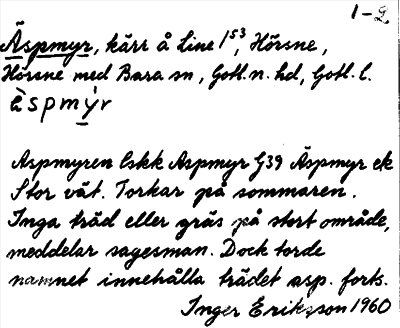 1-2.
Äspmyr, kärr å Line 1⁵³, Hörsne,
Hörsne med Bara sn, Gotl. n. hd, Gotl. l.
ὲspmỳr
Aspmyren Eskk Aspmyr G39 Äspmyr ek
Stor vät. Torkar på sommaren.
Inga träd eller gräs på stort område,
meddelar sagesman. Dock torde
namnet innehålla trädet asp. forts.
Inger Eriksson 1960